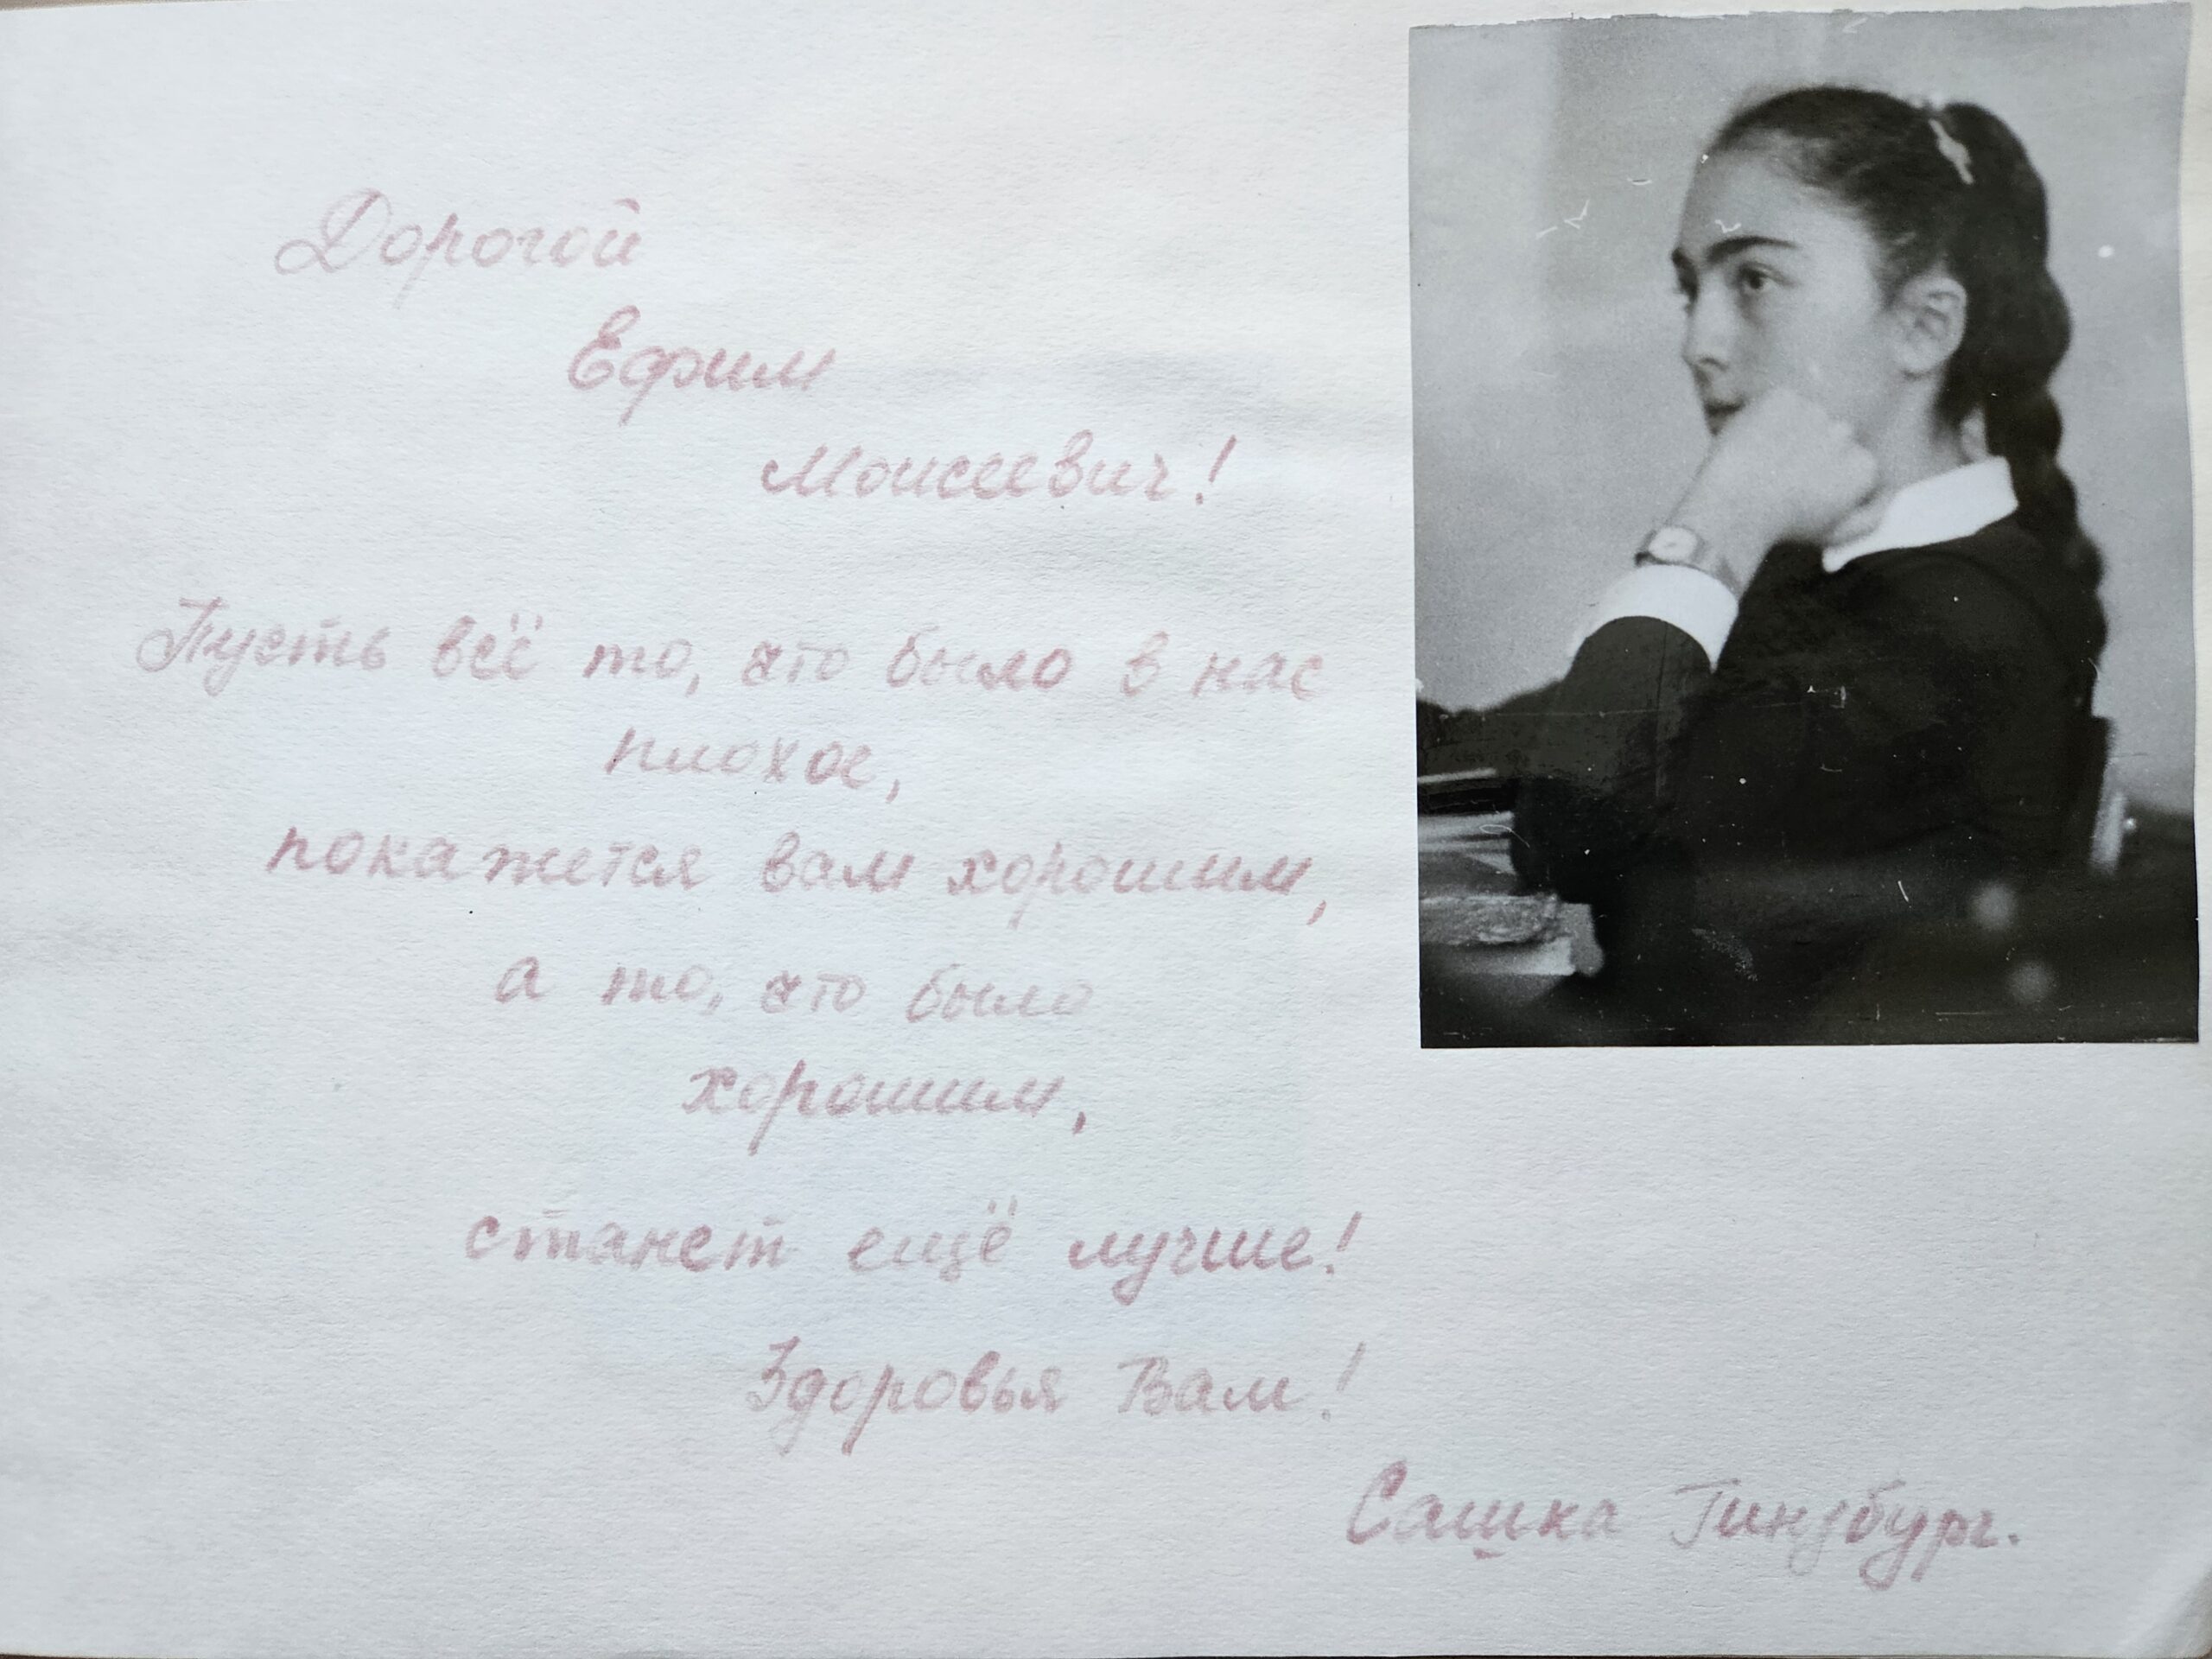 Дорогой
Ефим
Моисеевич!
Пусть всё то, что было в нас
плохое,
покажется вам хорошим,
а то, что было
хорошим,
станет ещё лучше!
Здоровья Вам!
Сашка Гинзбург.